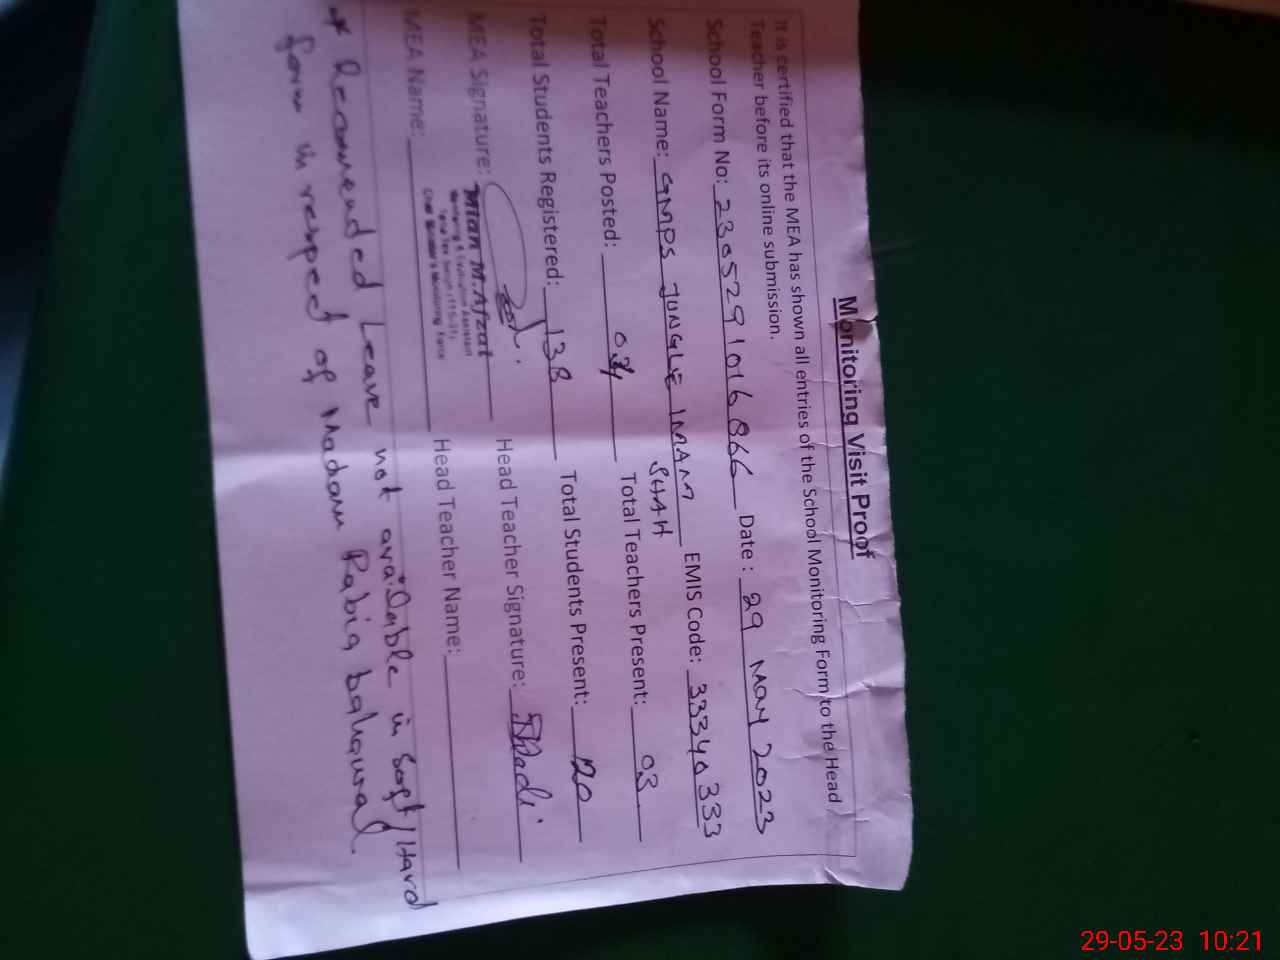 Monitoring Visit Proof
It is certified that the MEA has shown all entries of the School Monitoring Form to the Head
Teacher before its online submission.
School Form No: 2305291016866 Date : 29 MAY 2023
School Name: GMPS JUNGLE IMAM SHAH EMIS Code: 33340333
Total Teachers Posted: 04 Total Teachers Present: 03
Total Students Registered: 138 Total Students Present: 120
MEA Signature: Head Teacher Signature:
Mian M. Afzal
Monitoring & Evaluation Assistant
Chief Minister's Monitoring Force
MEA Name: Head Teacher Name:
* Recomended Leave not available in Soft/Hard
form in respect of Madam Rabia
29-05-23 10:21